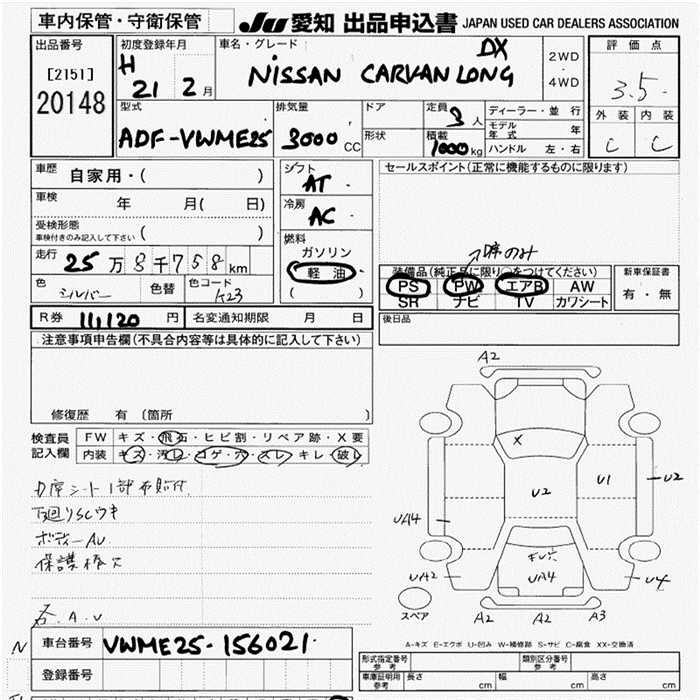 車内保管・守衛保管
JU 愛知 出品申込書 JAPAN USED CAR DEALERS ASSOCIATION
出品番号
[2151]
20148
初度登録年月
H 21 2月
車名・グレード
DX
NISSAN CARVAN LONG
2WD
・
4WD
評価点
3.5
外装 内装
C C
型式
ADF-VWME25
排気量
3000 CC
ドア
形状
定員 3人
積載 1000kg
ディーラー・並行
モデル年式 年
ハンドル 左・右
車歴 自家用・( )
車検 年 月( 日)
受検形態
車検付きのみ記入して下さい ( )
走行 25万8千758km
色 シルバー 色替 色コード K23
シフト
AT
冷房
AC
燃料
ガソリン
軽油
( )
セールスポイント(正常に機能するものに限ります)
席のみ
装備品(純正品に限り○をつけてください)
PS PW エアB AW
SR ナビ TV カワシート
新車保証書
有・無
R券 11,120円 名変通知期限 月 日
後日品
注意事項申告欄(不具合内容等は具体的に記入して下さい)
修復歴 有 〔箇所 〕
検査員記入欄
FW キズ・飛石・ヒビ割・リペア跡・X要
内装 キズ・汚レ・コゲ・穴・スレ・キレ・破レ
下廻りSCウキ
ボディーAU
各.A.U
A2
X
U2
U1
U2
UA4
UA2
キレ穴
UA4
U4
スペア
A2 A2 A3
A-キズ E-エクボ U-凹み W-補修跡 S-サビ C-腐食 XX-交換済
N
車台番号 VWME25-156021
登録番号
形式指定番号 参考
類別区分番号 参考
車庫証明用 参考 長さ cm 幅 cm 高さ cm